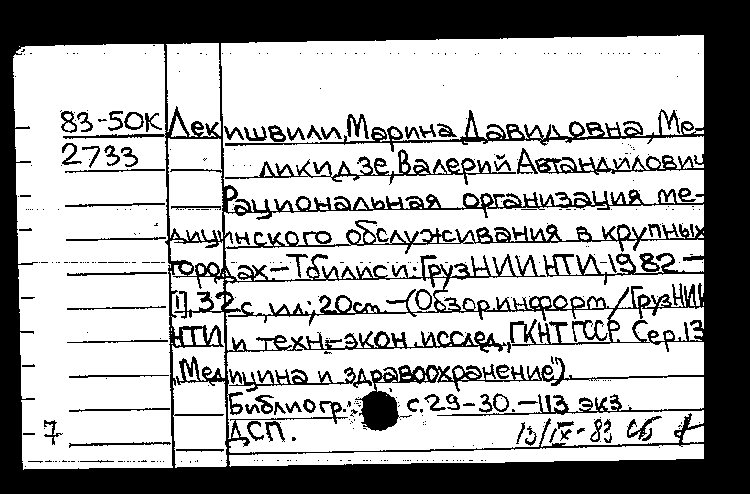 83-50К Лекишвили, Марина Давидовна, Ме-
2733 ликидзе, Валерий Автандилович
Рациональная организация ме-
дицинского обслуживания в крупных
городах.-Тбилиси: ГрузНИИНТИ, 1982-
[1], 32 с., ил.; 20 cm.-(Обзор. информ / ГрузНИИ
НТИ и техн.-экон. исслед., ГКНТ ГССР. Сер. 13
"Медицина и здравоохранение").
Библиогр.: с. 29-30.-113 экз.
7 ДСП. 13/IX-83